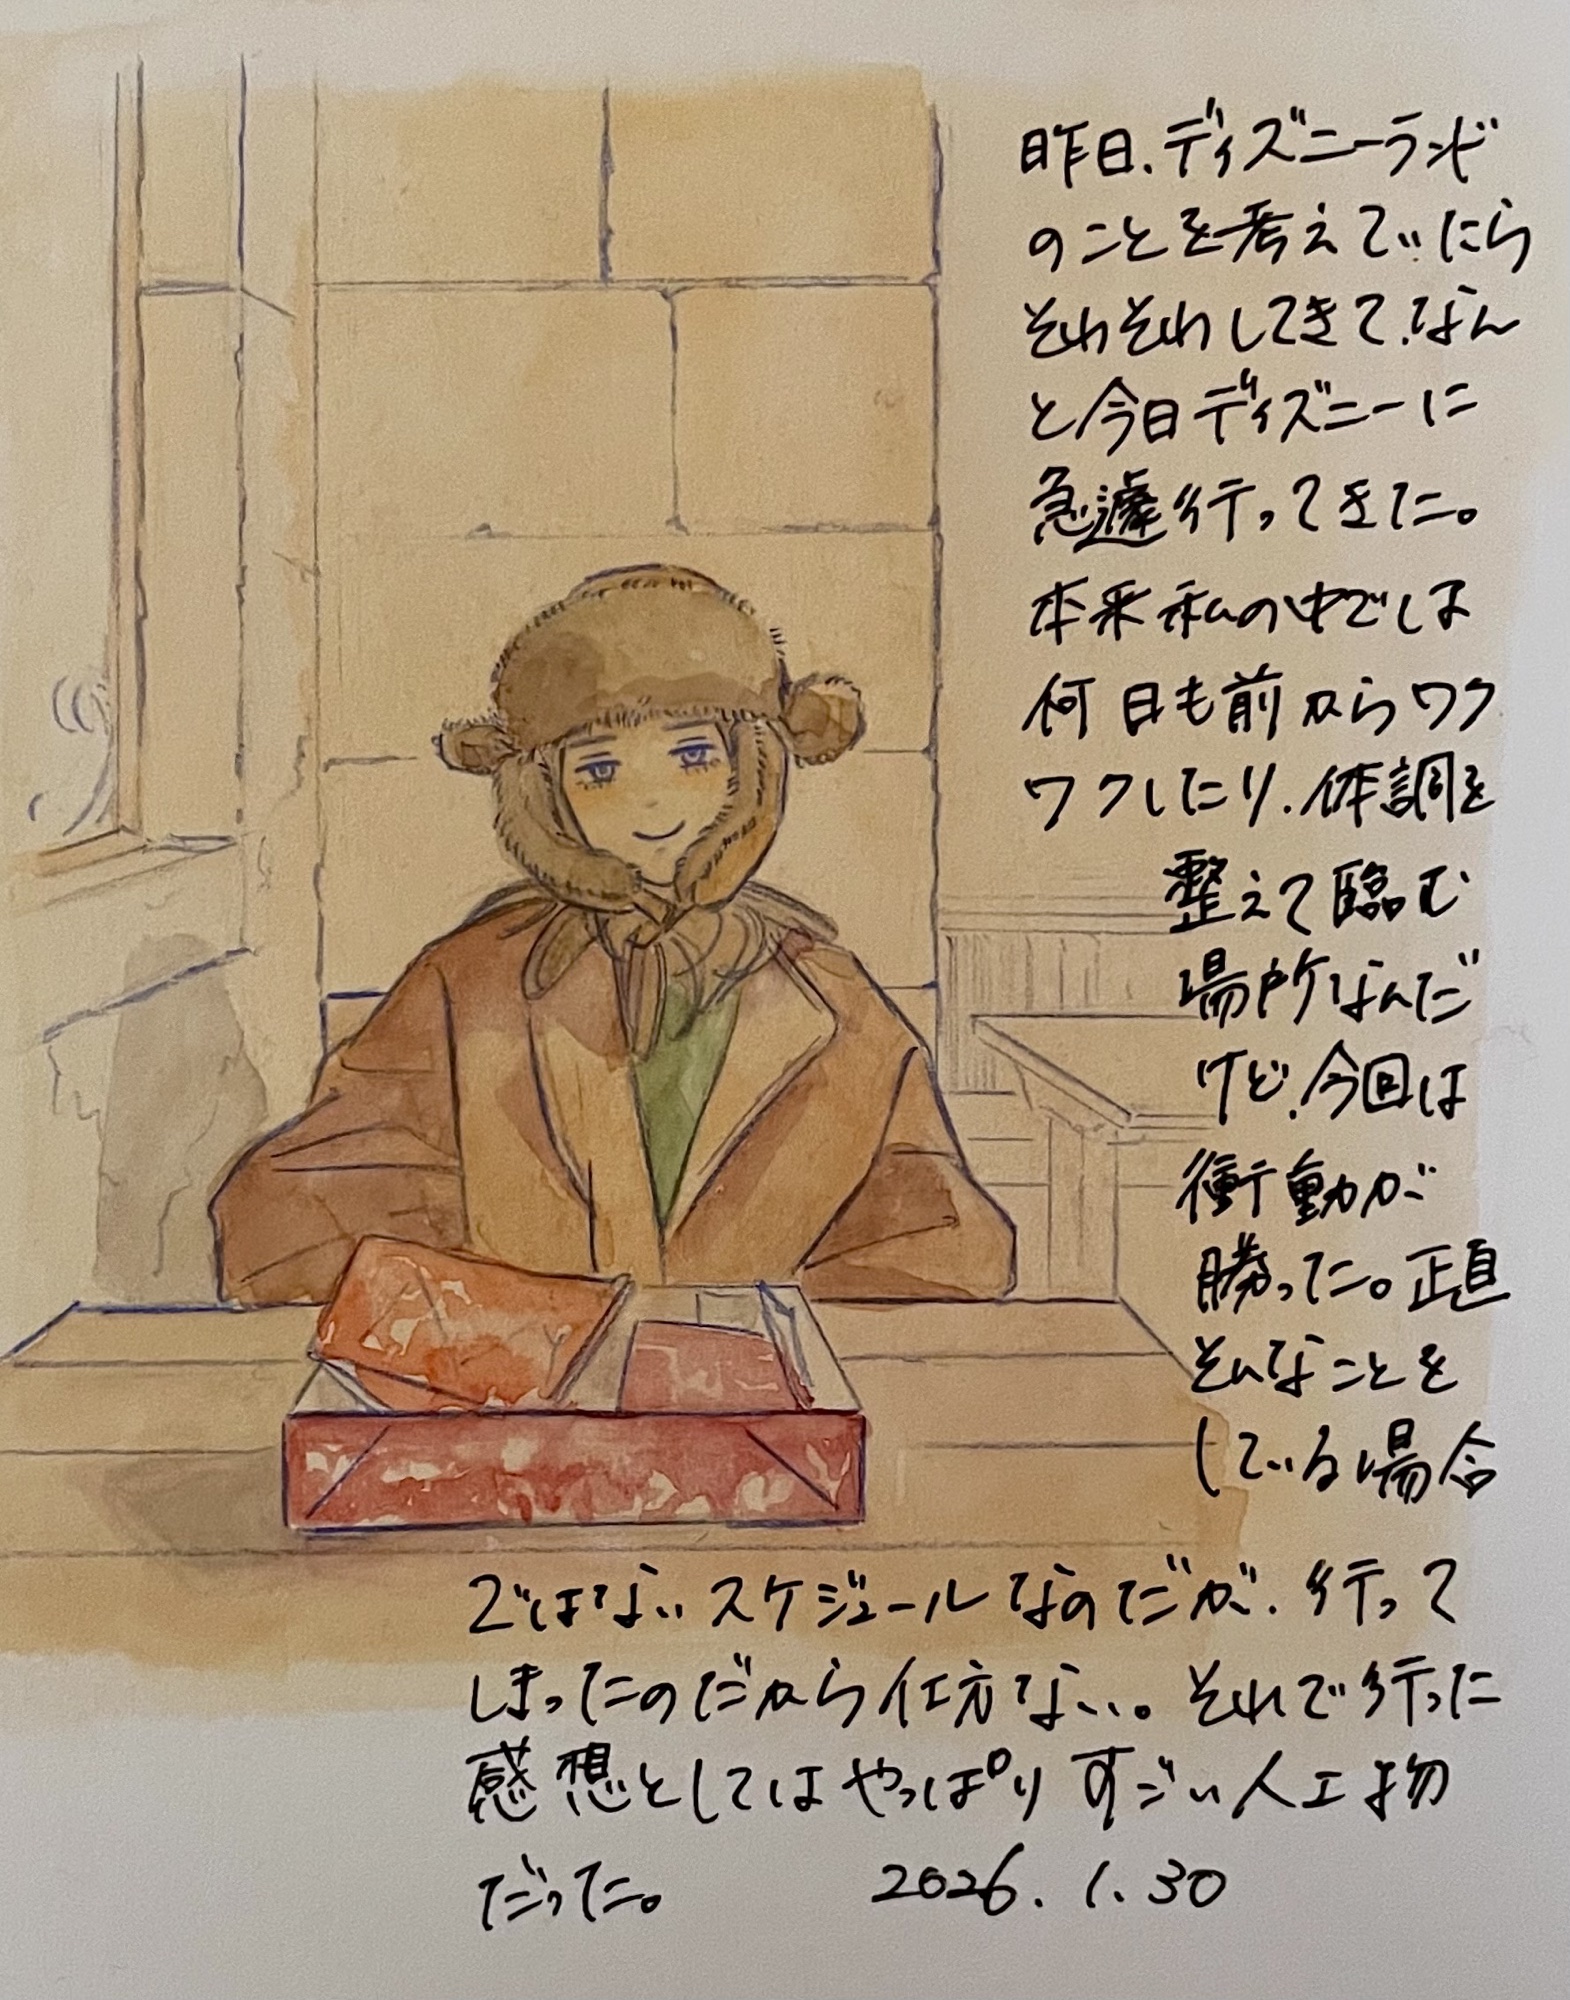 昨日、ディズニーランド
のことを考えていたら
そわそわしてきて、なん
と今日ディズニーに
急遽行ってきた。
本来私の中では
何日も前からワク
ワクしたり、体調を
整えて臨む
場所なんだ
けど、今回は
衝動が
勝った。正直
そんなことを
している場合
ではないスケジュールなのだが、行って
しまったのだから仕方ない。それで行った
感想としてはやっぱりすごい人工物
だった。 2026.1.30